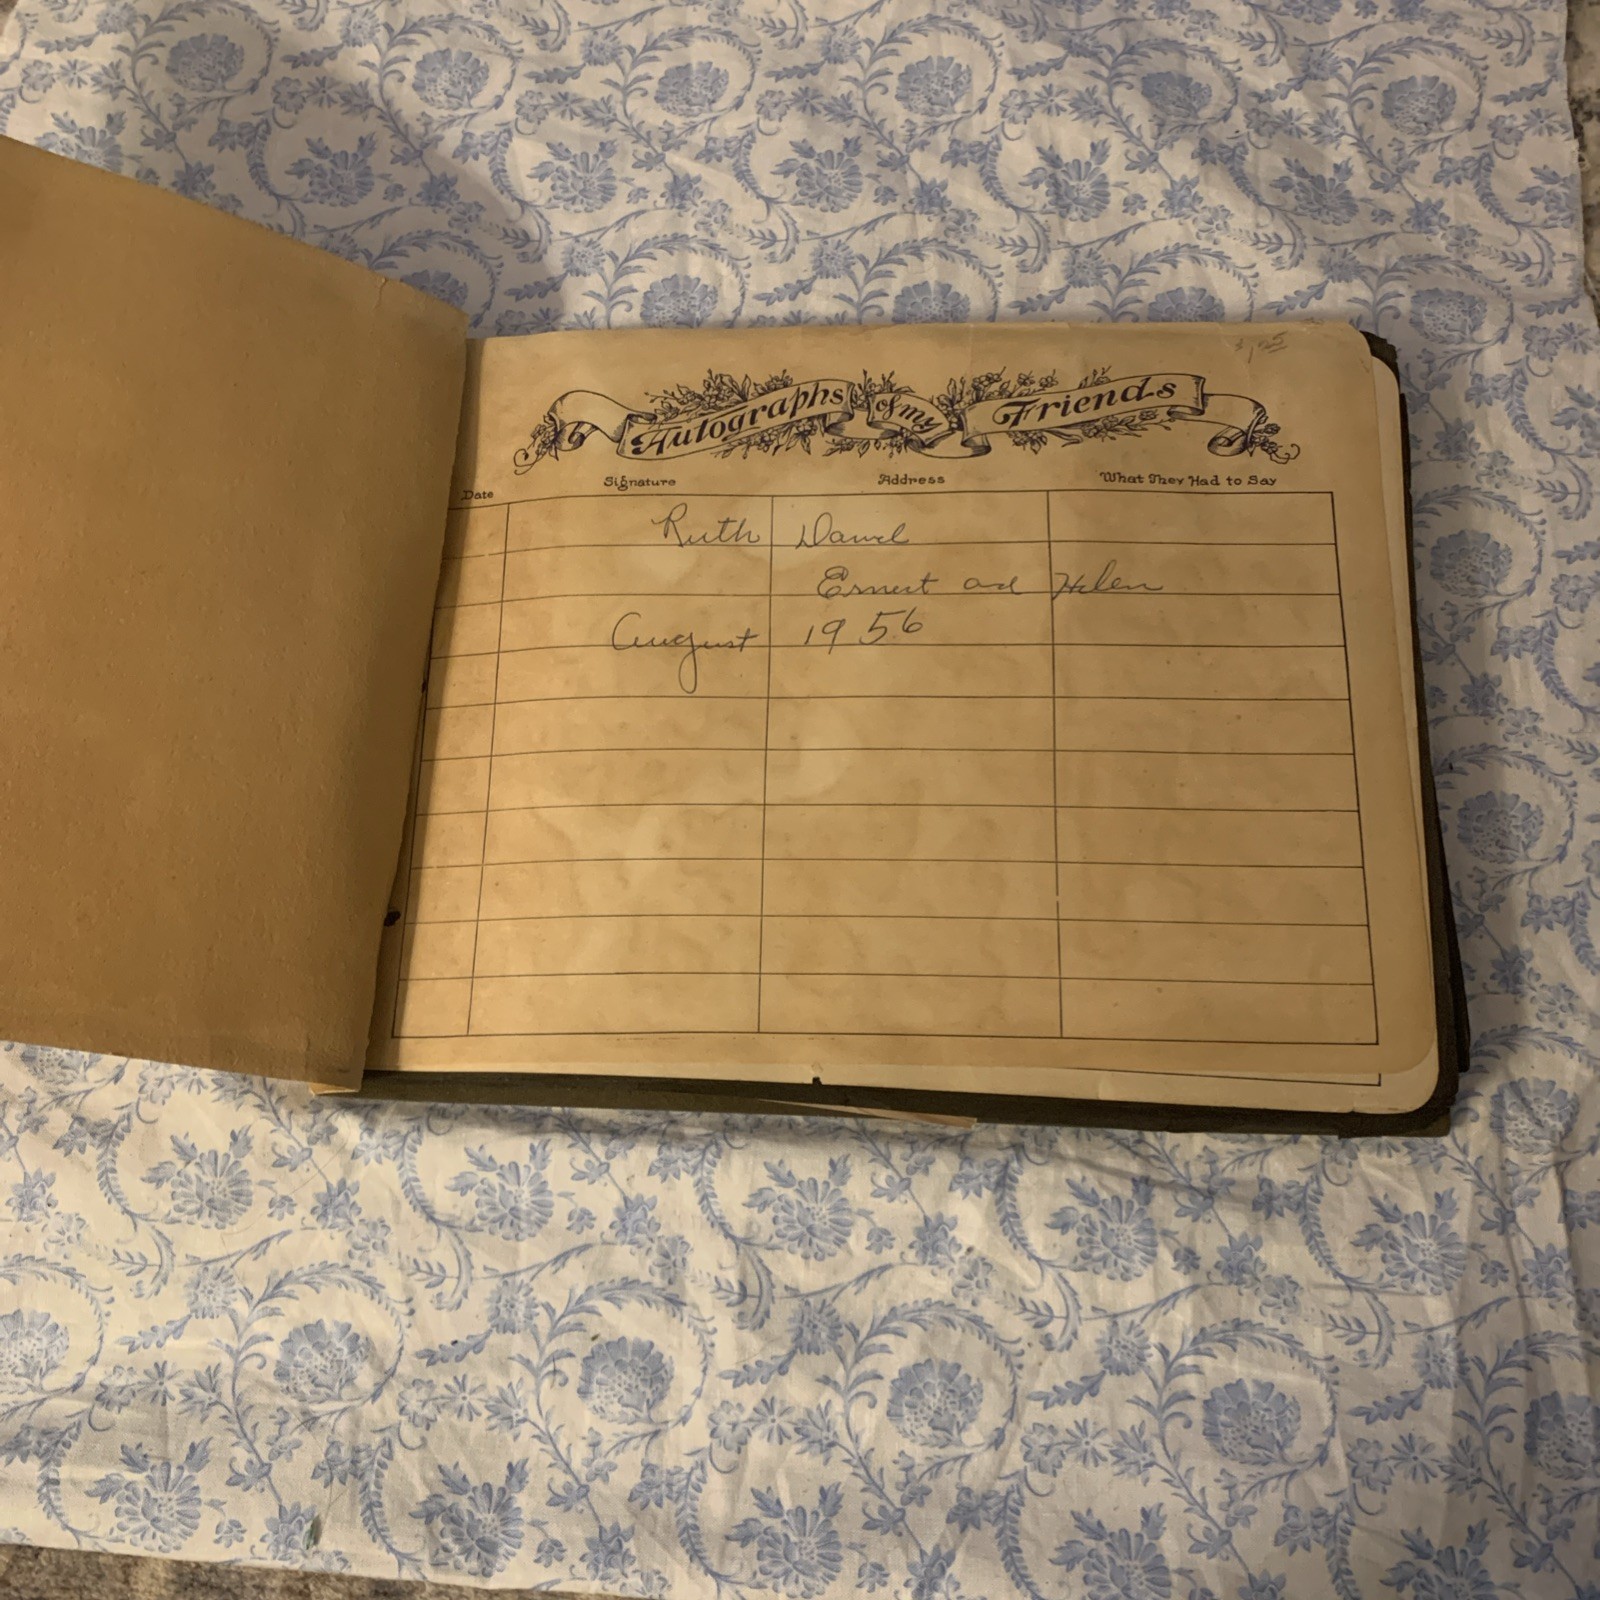 $1.25
Autographs of my Friends
Date Signature Address What They Had to Say
Ruth David
Ernest and Helen
August 1956